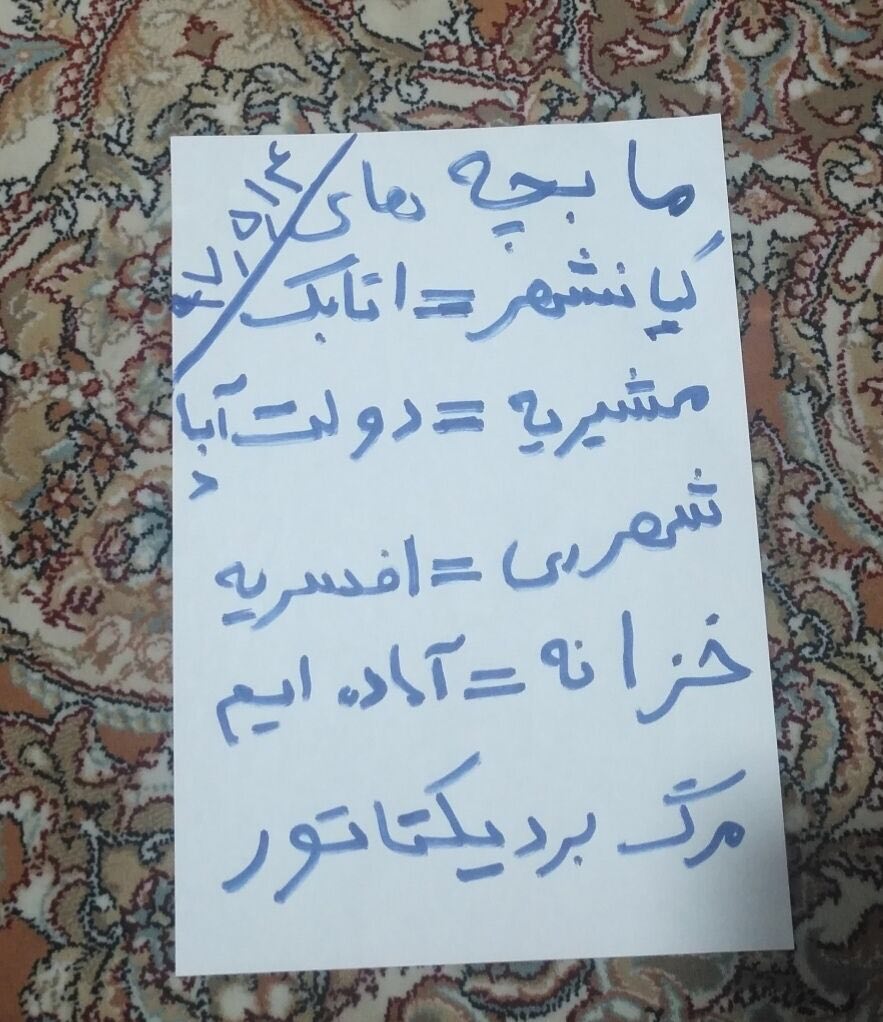 ما بچه های
کیانشهر = اتابک
مشیریه = دولت آبا
د
شهرری = افسریه
خزانه = آماده ایم
مرگ بر دیکتاتور